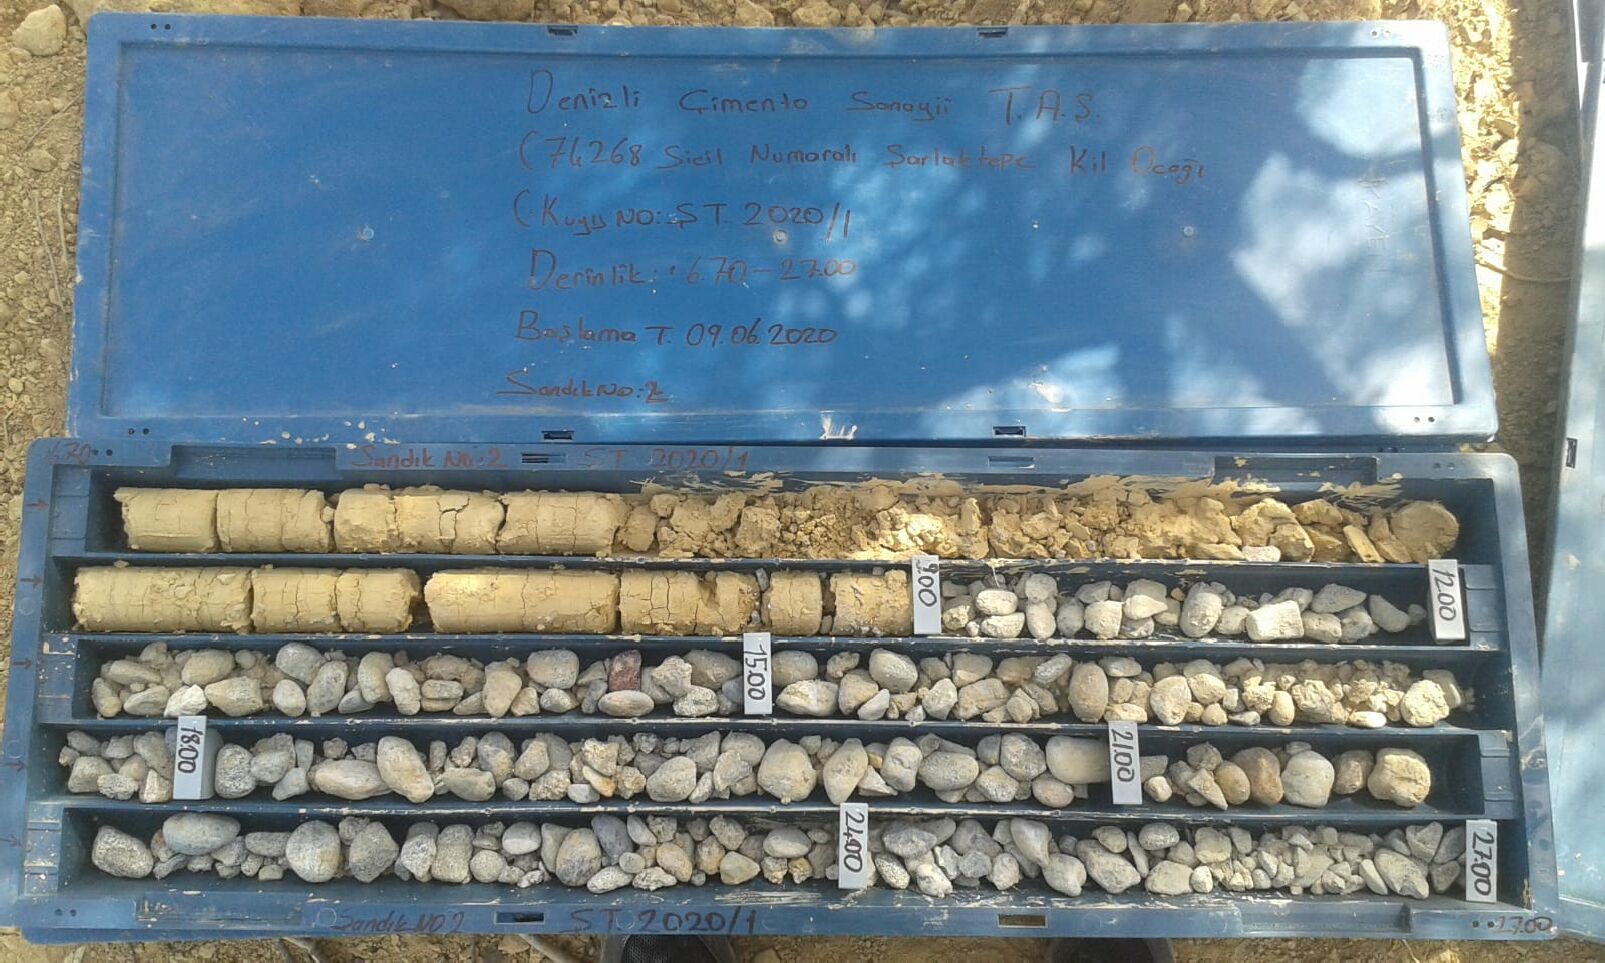 Denizli Çimento Sanayii T.A.Ş.
(74268 Sicil Numaralı Sarlaktepe Kil Ocağı
(Kuyu NO: ST. 2020/1
Derinlik: 6.70-27.00
Başlama T. 09.06.2020
Sandık No: 2
6.70 Sandık No: 2 ST 2020/1
9.00
12.00
15.00
18.00
21.00
24.00
27.00
Sandık NO 2 ST 2020/1 27.00